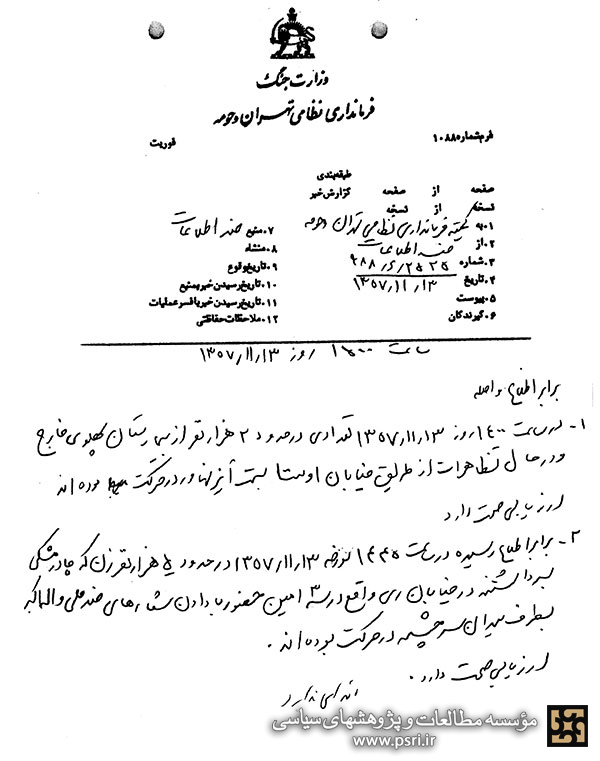 وزارت جنگ
فرمانداری نظامی تهران و حومه
فرم شماره ۱۰۸۸۰
فوریت
طبقه‌بندی
صفحه از صفحه گزارش خبر
نسخه از نسخه
۱. به کمیته فرمانداری نظامی تهران و حومه
۲. از ضد اطلاعات
۳. شماره
۴. تاریخ ۱۳۵۷/۱۱/۱۳
۵. پیوست
۶. گیرندگان
۷. منبع ضد اطلاعات
۸. منشاء
۹. تاریخ وقوع
۱۰. تاریخ رسیدن خبر بمنبع
۱۱. تاریخ رسیدن خبر بافسر عملیات
۱۲. ملاحظات حفاظتی
ساعت روز ۱۳۵۷/۱۱/۱۳
برابر اطلاع واصله
۱- در ساعت ۱۴۰۰ روز ۱۳۵۷/۱۱/۱۳ تعدادی در حدود ۲ هزار نفر از بیمارستان پهلوی خارج
و در حال تظاهرات از طریق خیابان اوستا بسمت آیزنهاور در حرکت بوده اند
ارزیابی صحت دارد
۲- برابر اطلاع رسیده در ساعت مورخه ۱۳۵۷/۱۱/۱۳ در حدود هزار نفر زن که چادر مشکی
بسر داشتند در خیابان ری واقع در سه راه امین حضور با دادن شعارهای ضد ملی و الله اکبر
بطرف میدان سرچشمه در حرکت بوده اند.
ارزیابی صحت دارد.
مؤسسه مطالعات و پژوهشهای سیاسی
www.psri.ir